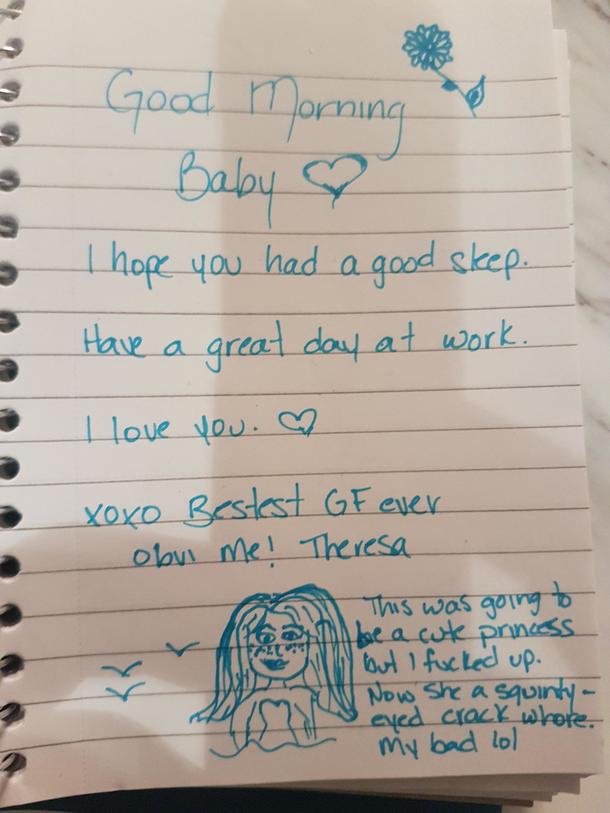 Good Morning
Baby
I hope you had a good sleep.
Have a great day at work.
I love you.
xoxo Bestest GF ever
obvi me! Theresa
This was going to
be a cute princess
but I fucked up.
Now she a squinty-
eyed crack whore.
my bad lol